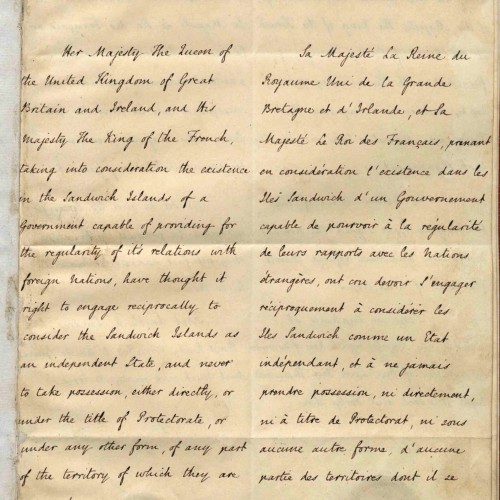 Her Majesty The Queen of
the United Kingdom of Great
Britain and Ireland, and His
Majesty The King of the French,
taking into consideration the existence
in the Sandwich Islands of a
Government capable of providing for
the regularity of it's relations with
foreign Nations, have thought it
right to engage reciprocally to
consider the Sandwich Islands as
an independent State, and never
to take possession, either directly, or
under the title of Protectorate, or
under any other form, of any part
of the territory of which they are
Sa Majesté La Reine du
Royaume Uni de la Grande
Bretagne et d'Irlande, et Sa
Majesté Le Roi des Français, prenant
en considération l'existence dans les
Iles Sandwich d'un Gouvernement
capable de pourvoir à la régularité
de leurs rapports avec les Nations
étrangères, ont cru devoir s'engager
réciproquement à considérer les
Iles Sandwich comme un Etat
indépendant, et à ne jamais
prendre possession, ni directement,
ni à titre de Protectorat, ni sous
aucune autre forme, d'aucune
partie des territoires dont il se